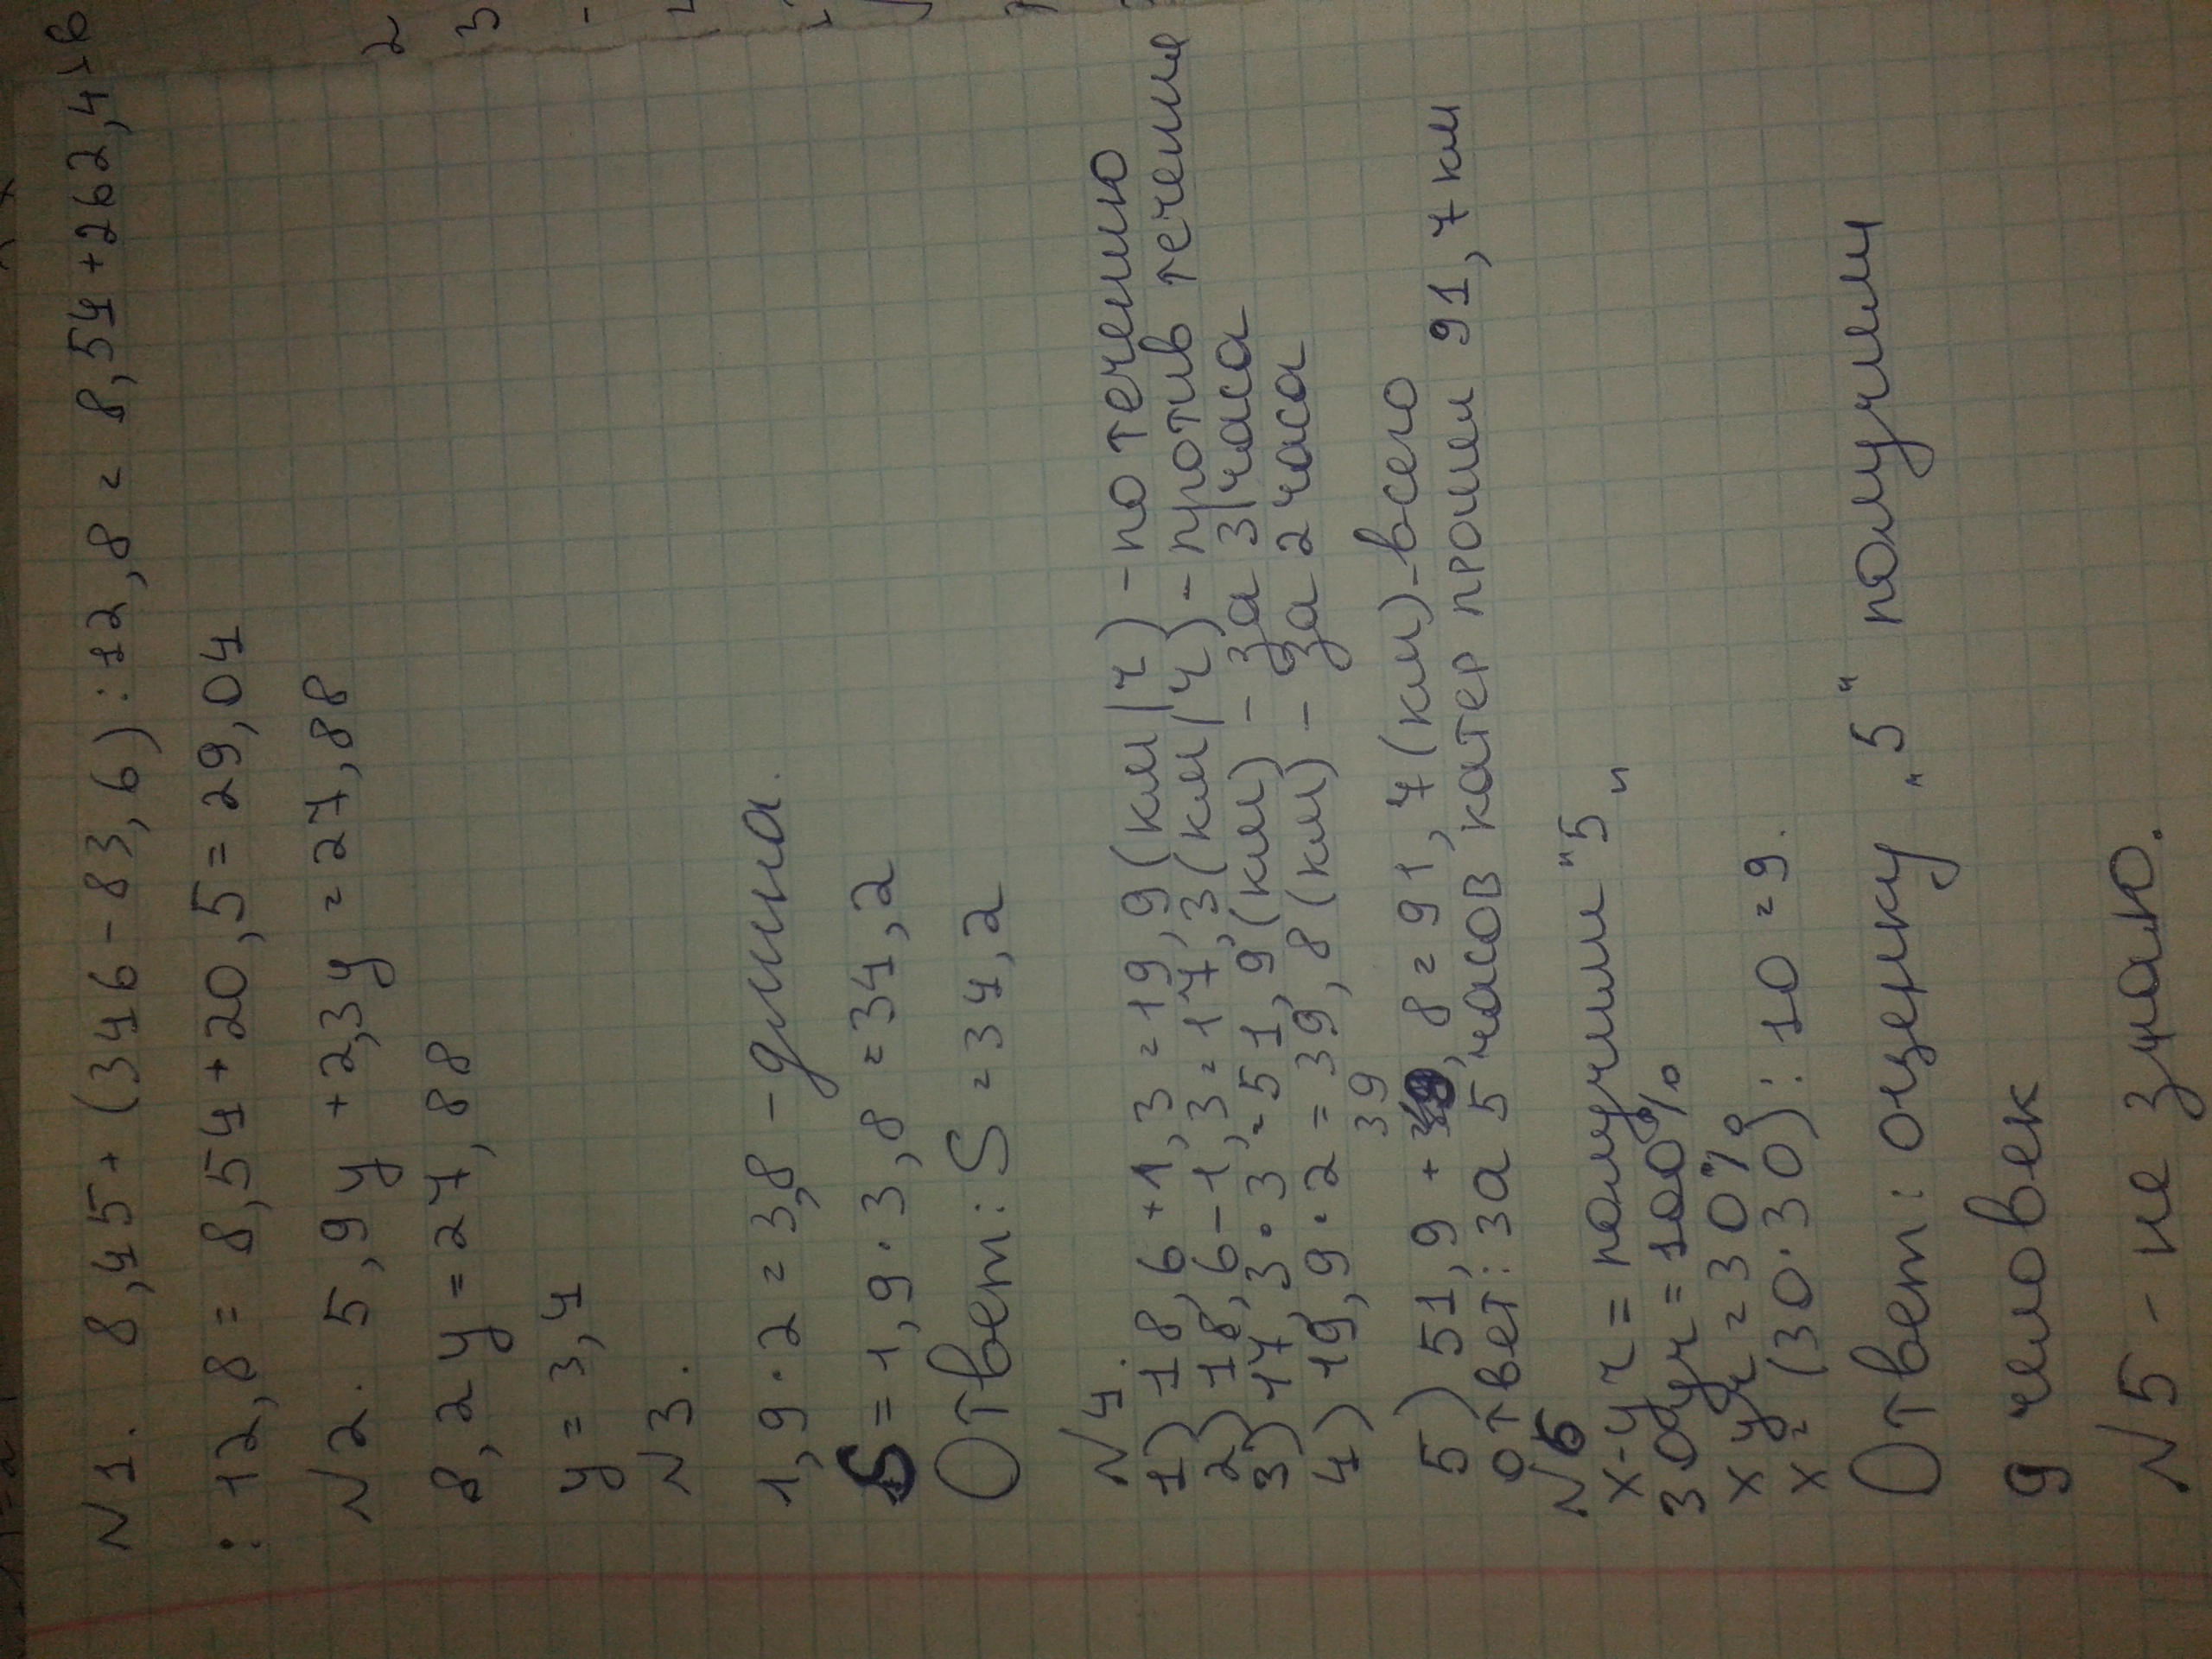 N1. 8,45+(346-83,6):12,8= 8,54+262,4
:12,8= 8,54+20,5=29,04
N2. 5,9y+2,3y=27,88
8,2y=27,88
y=3,4
N3.
1,9·2=3,8-длина.
S=1,9·3,8=34,2
Ответ: S=34,2
N4.
1) 18,6+1,3=19,9(км/ч)-по течению
2) 18,6-1,3=17,3(км/ч)-против течение
3) 17,3·3=51,9(км) - за 3 часа
4) 19,9·2=39,8(км) - за 2 часа
39
5) 51,9+ ,8=91,7(км)-всего
Ответ: за 5 часов катер прошел 91,7 км
N6
x-уч=получили "5"
30уч=100%
x уч=30%
x=(30·30):10=9.
Ответ: оценку „5" получили
9 человек
N5-не знаю.